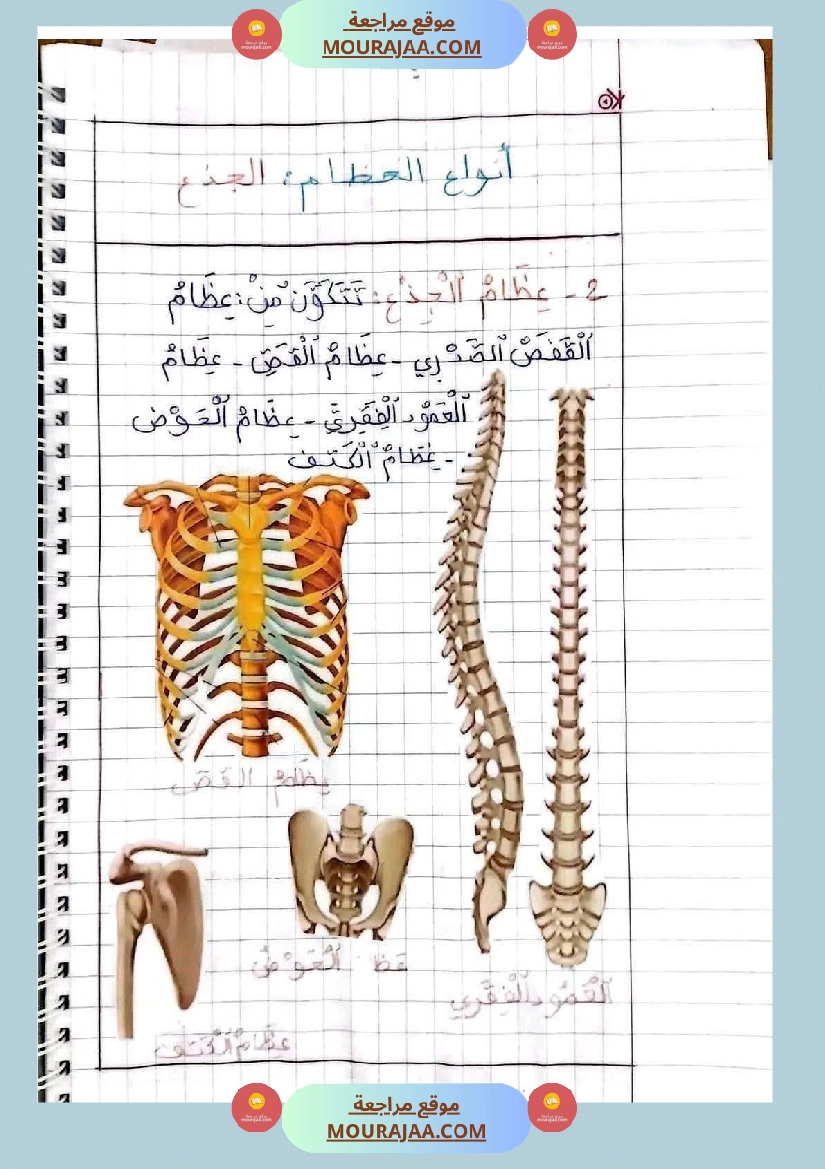 موقع مراجعة
MOURAJAA.COM
أنواع العظام: الجذع
2 - عِظَامُ الْجِذْعِ: تَتَكَوَّن مِنْ: عِظَامُ
الْقَفَصْ الصَّدْرِي - عِظَامُ الْقَصِّ - عِظَامُ
الْعَمُود الْفِقَرِيِّ - عِظَامُ الْحَوْض
- عِظَامُ الْكَتِف
عظام القص
الْحَوْضُ
الْعَمُود الْفِقَرِي
عِظَامُ الْكَتِف
موقع مراجعة
MOURAJAA.COM